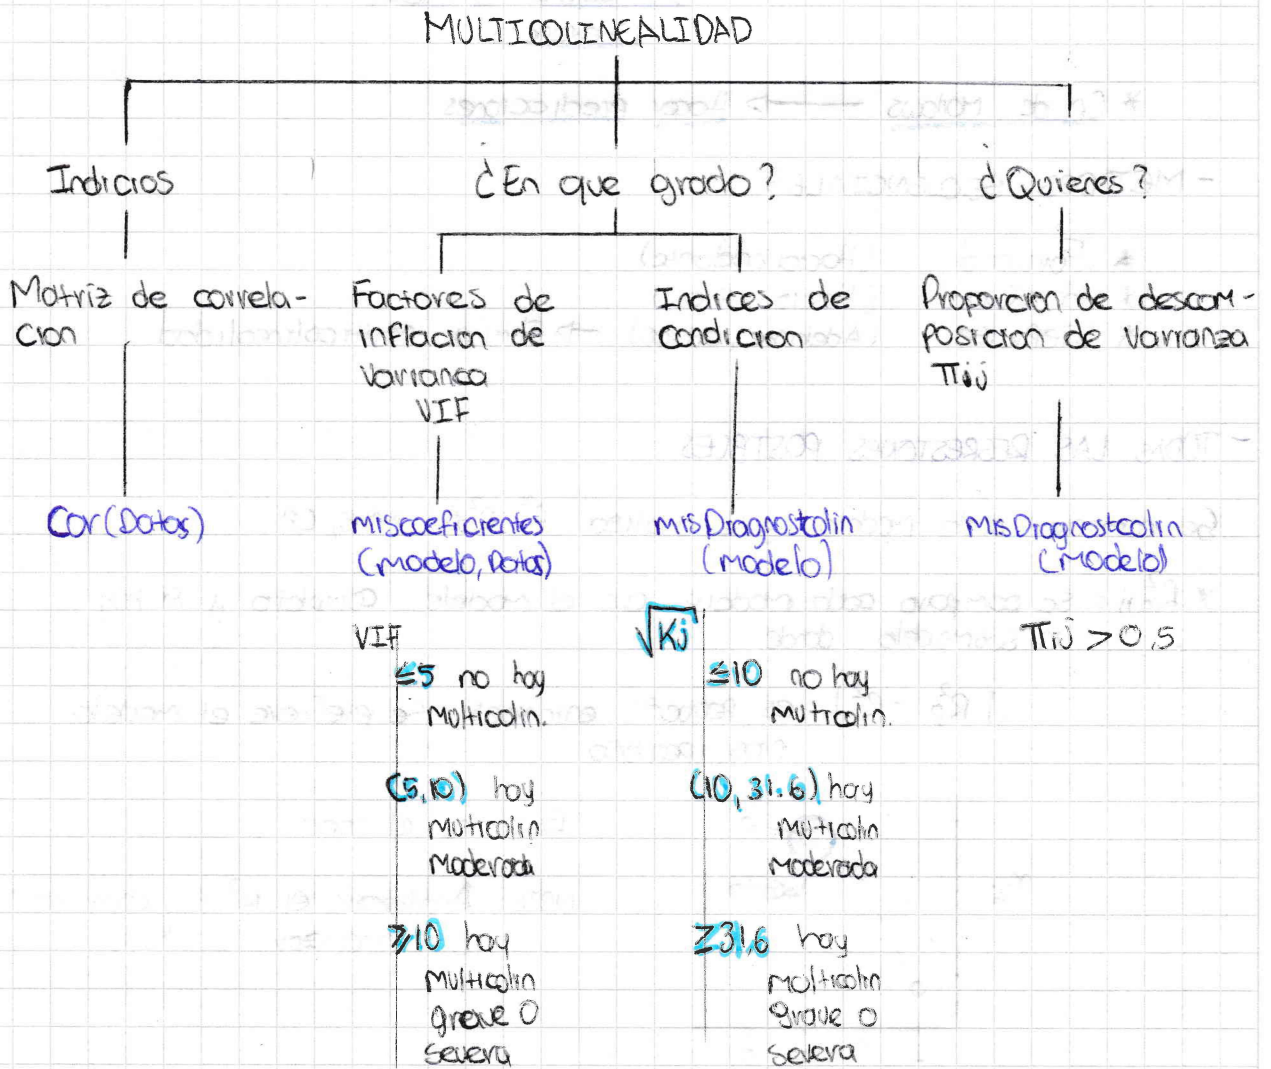 MULTICOLINEALIDAD
Indicios
¿En que grado?
¿Quienes?
Matriz de correla-
cion
Factores de
inflacion de
Varianca
VIF
Indices de
Condicion
Proporcion de descom-
posicion de varianza
πij
Cor(Datos)
miscoeficientes
(modelo, Datos)
misDiagnostcolin
(modelo)
misDiagnostcolin
(Modelo)
VIF
≤5 no hay
Multicolin.
(5,10) hay
Muticolin
Moderada
≥10 hay
Multicolin
grave o
Severa
√Kj
≤10 no hay
Muticolin.
(10, 31.6) hay
Muticolin
Moderada
≥31.6 hay
Multicolin
grave o
Severa
πij > 0.5